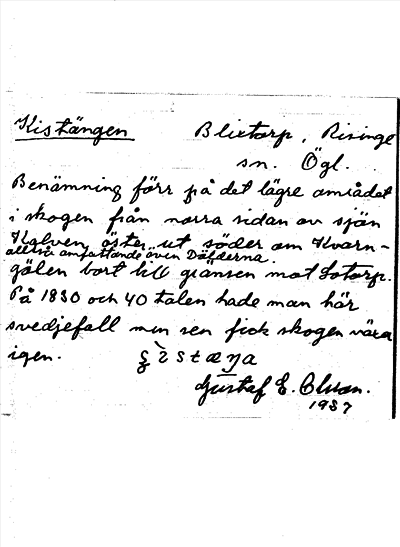 Kistängen Blixtorp, Risinge
sn. Ögl.
Benämning förr på det lägre området
i skogen från norra sidan av sjön
Kalven öster ut söder om Kvarn-
alltså omfattande även Dälderna.
gölen bort till gränsen mot Sotorp.
På 1830 och 40 talen hade man här
svedjefall men sen fick skogen växa
igen.
Gustaf E. Olsson.
1937